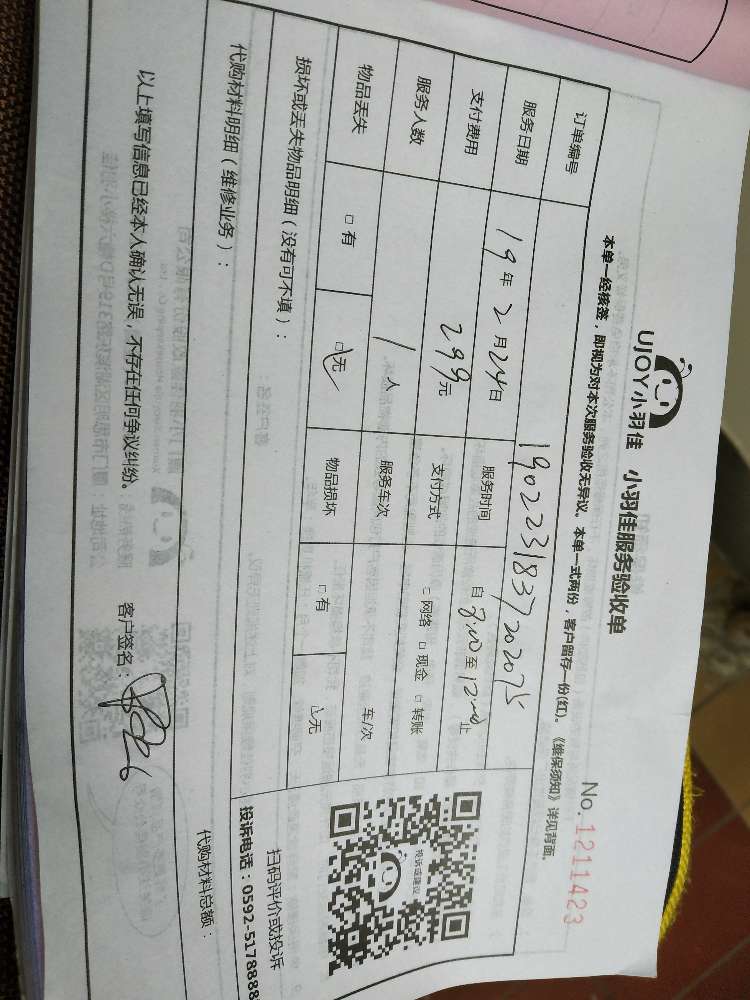 UJOY小羽佳 小羽佳服务验收单
No. 1211423
本单一经核签，即视为对本次服务验收无异议。本单一式两份，客户留存一份(红)。《维保须知》详见背面。
订单编号 1902231837202075
服务日期 19年2月24日 服务时间 自8:00至12:00止
支付费用 299元 支付方式 □网络 □现金 □转账
服务人数 1人 服务车次 车/次
物品丢失 □有 □无 物品损坏 □有 □无
投诉或建议
扫码评价或投诉
投诉电话：0592-5178888
损坏或丢失物品明细（没有可不填）：
代购材料明细（维修业务）：
代购材料总额：
以上填写信息已经本人确认无误，不存在任何争议纠纷。 客户签名：